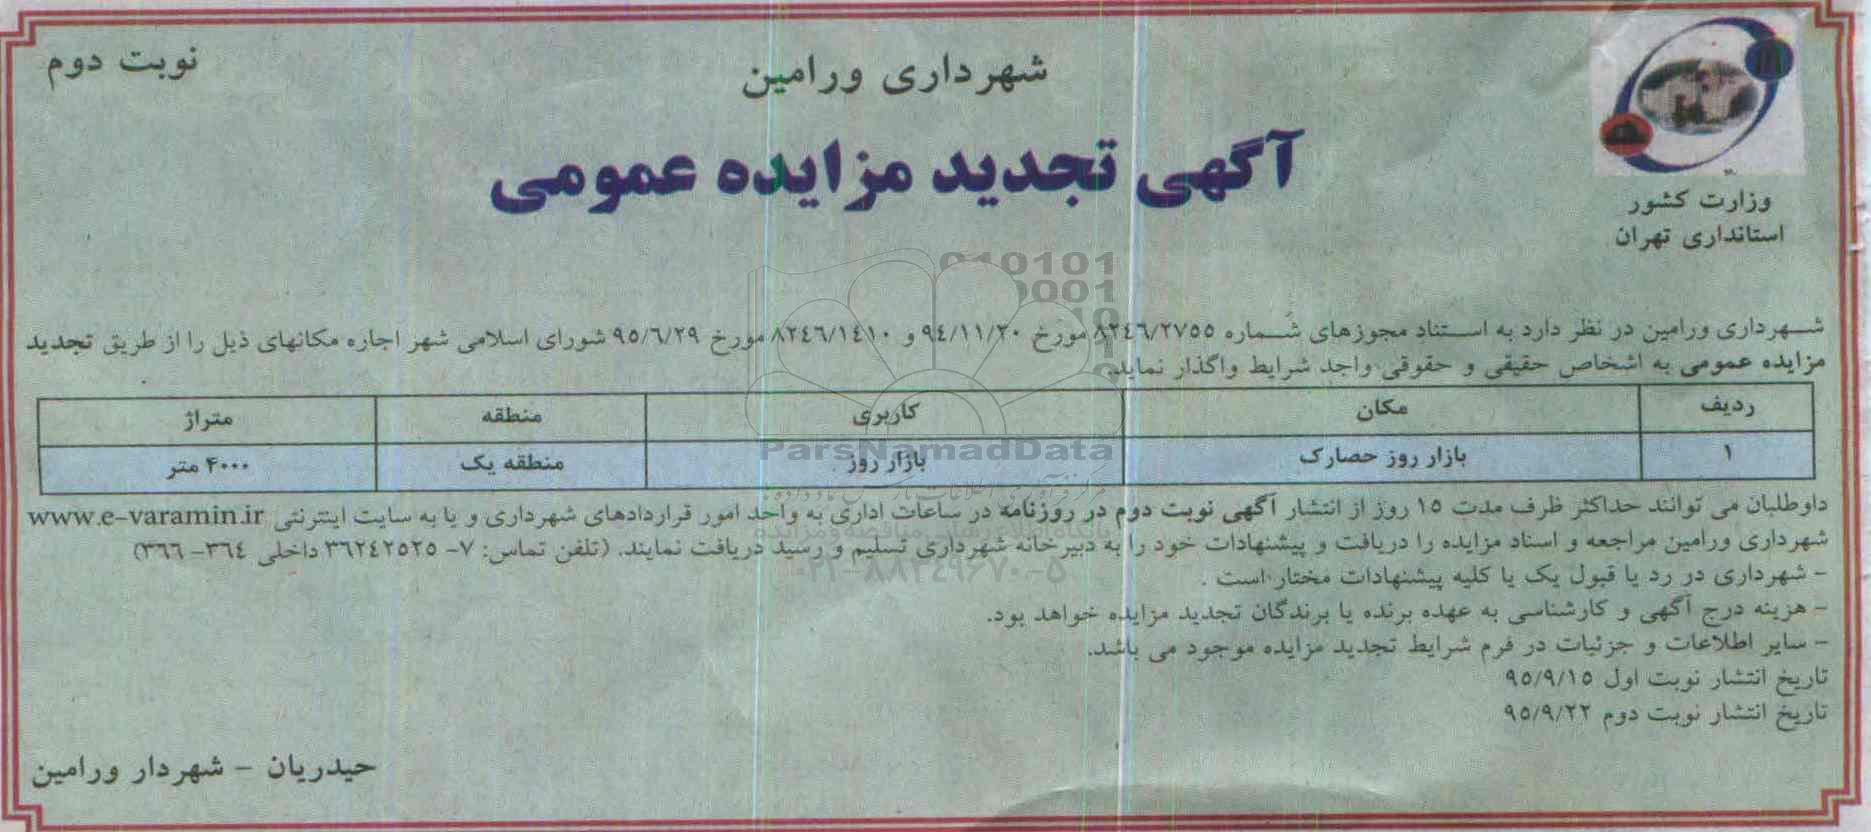 نوبت دوم
شهرداری ورامین
آگهی تجدید مزایده عمومی
وزارت کشور
استانداری تهران
شهرداری ورامین در نظر دارد به استناد مجوزهای شماره ۸۲٤٦/۲۷٥٥ مورخ ۹٤/۱۱/۲۰ و ۸۲٤٦/۱٤۱۰ مورخ ۹٥/٦/۲۹ شورای اسلامی شهر اجاره مکانهای ذیل را از طریق تجدید
مزایده عمومی به اشخاص حقیقی و حقوقی واجد شرایط واگذار نماید.
ردیف مکان کاربری منطقه متراژ
۱ بازار روز حصارک بازار روز منطقه یک ۴۰۰۰ متر
داوطلبان می توانند حداکثر ظرف مدت ۱٥ روز از انتشار آگهی نوبت دوم در روزنامه در ساعات اداری به واحد امور قراردادهای شهرداری و یا به سایت اینترنتی www.e-varamin.ir
شهرداری ورامین مراجعه و اسناد مزایده را دریافت و پیشنهادات خود را به دبیرخانه شهرداری تسلیم و رسید دریافت نمایند. (تلفن تماس: ۷- ۳٦۲٤۲٥۲٥ داخلی ۳٦٤- ۳٦٦)
- شهرداری در رد یا قبول یک یا کلیه پیشنهادات مختار است .
- هزینه درج آگهی و کارشناسی به عهده برنده یا برندگان تجدید مزایده خواهد بود.
- سایر اطلاعات و جزئیات در فرم شرایط تجدید مزایده موجود می باشد.
تاریخ انتشار نوبت اول ۹٥/۹/۱٥
تاریخ انتشار نوبت دوم ۹٥/۹/۲۲
حیدریان - شهردار ورامین
ParsNamadData
۰۲۱-۸۸۳٤۹٦۷۰-٥